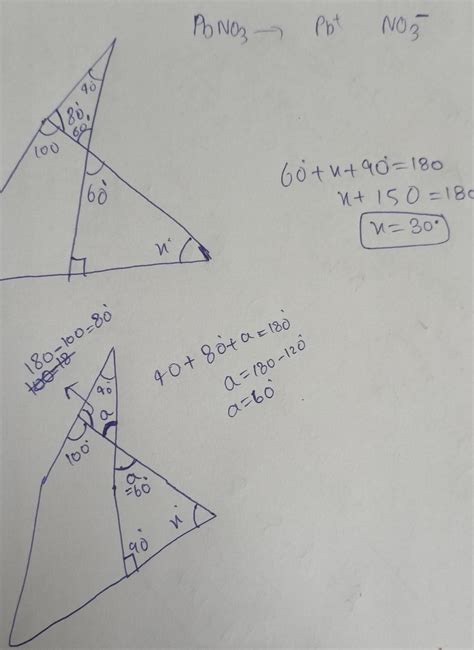 PbNO3 → Pb+ NO3−
40°
80°
60°
100
60°
x°
60°+x+90°=180
x+150=180
x=30°
180-100=80°
100-18
40+80°+a=180°
a=180-120°
a=60°
40°
a
100°
a
=60°
x°
90°